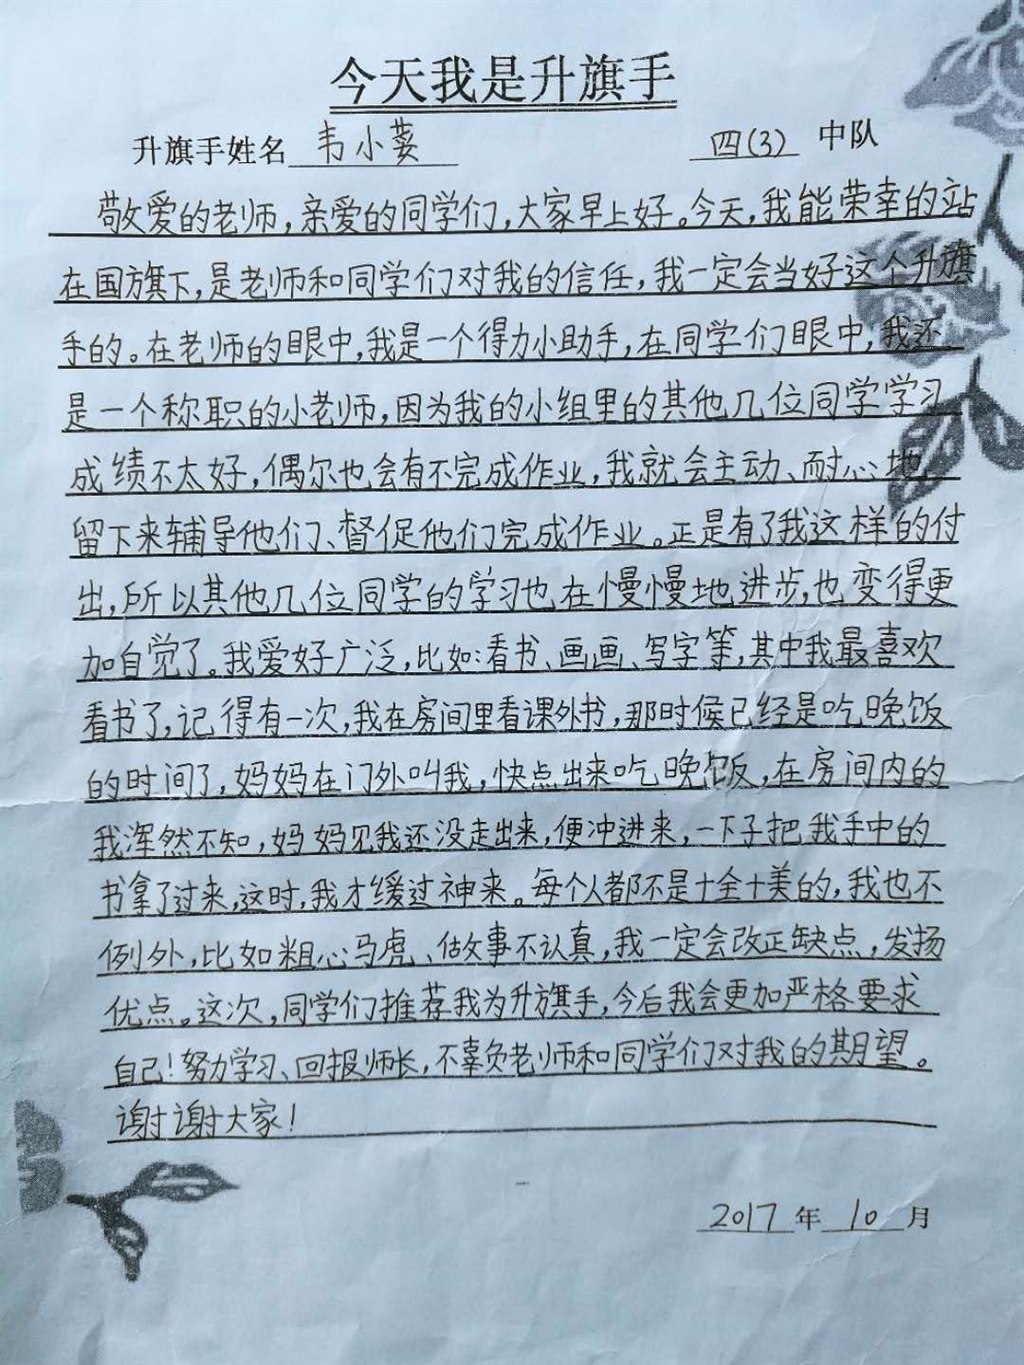 今天我是升旗手
升旗手姓名 韦小葽 四(3) 中队
敬爱的老师,亲爱的同学们,大家早上好。今天,我能荣幸的站
在国旗下,是老师和同学们对我的信任,我一定会当好这个升旗
手的。在老师的眼中,我是一个得力小助手,在同学们眼中,我还
是一个称职的小老师,因为我的小组里的其他几位同学学习
成绩不太好,偶尔也会有不完成作业,我就会主动、耐心地
留下来辅导他们、督促他们完成作业。正是有了我这样的付
出,所以其他几位同学的学习也在慢慢地进步,也变得更
加自觉了。我爱好广泛,比如:看书、画画、写字等,其中我最喜欢
看书了,记得有一次,我在房间里看课外书,那时候已经是吃晚饭
的时间了,妈妈在门外叫我,快点出来吃晚饭,在房间内的
我浑然不知,妈妈见我还没走出来,便冲进来,一下子把我手中的
书拿了过来,这时,我才缓过神来。每个人都不是十全十美的,我也不
例外,比如粗心马虎、做故事不认真,我一定会改正缺点,发扬
优点。这次,同学们推荐我为升旗手,今后我会更加严格要求
自己!努力学习、回报师长,不辜负老师和同学们对我的期望。
谢谢大家!
2017年10月